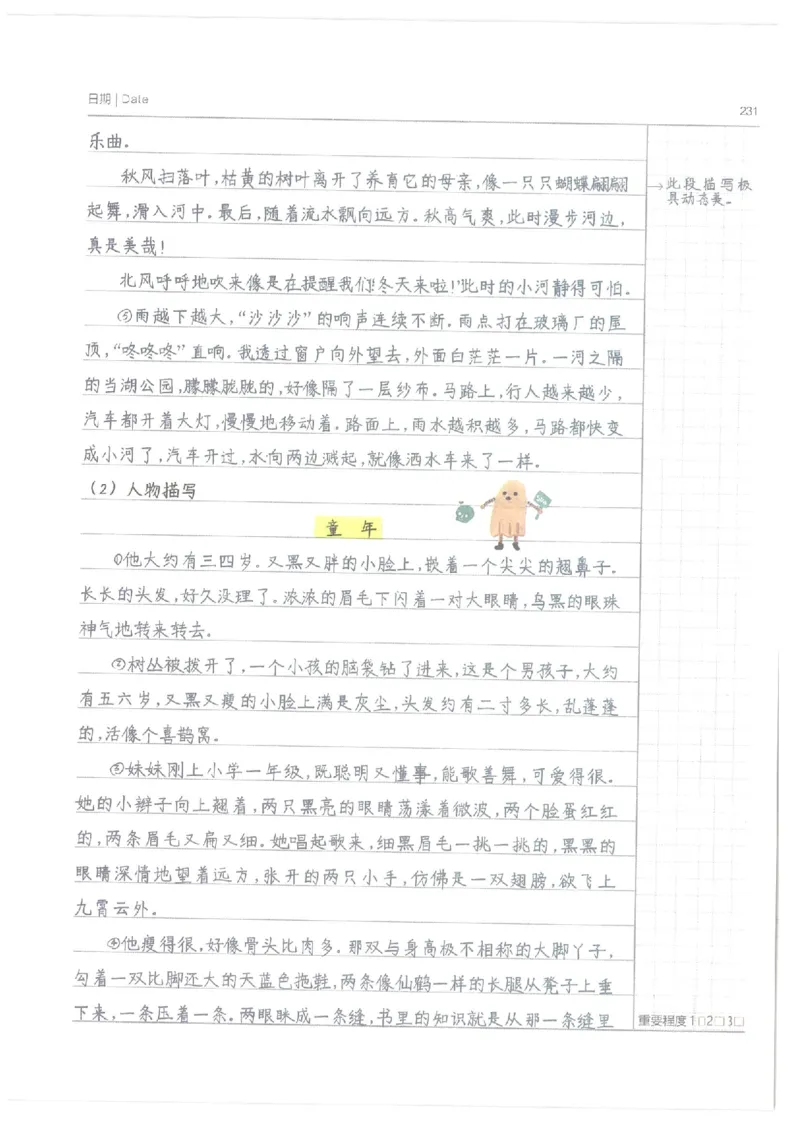 日期 | Date
231
乐曲。
秋风扫落叶,枯黄的树叶离开了养育它的母亲,像一只只蝴蝶翩翩
起舞,滑入河中。最后,随着流水飘向远方。秋高气爽,此时漫步河边,
真是美哉!
→此段描写极
具动态美。
北风呼呼地吹来像是在提醒我们:“冬天来啦!”此时的小河静得可怕。
⑤雨越下越大,“沙沙沙”的响声连续不断。雨点打在玻璃厂的屋
顶,“咚咚咚”直响。我透过窗户向外望去,外面白茫茫一片。一河之隔
的当湖公园,朦朦胧胧的,好像隔了一层纱布。马路上,行人越来越少,
汽车都开着大灯,慢慢地移动着。路面上,雨水越积越多,马路都快变
成小河了,汽车开过,水向两边溅起,就像洒水车来了一样。
(2)人物描写
童 年
①他大约有三四岁。又黑又胖的小脸上,嵌着一个尖尖的翘鼻子。
长长的头发,好久没理了。浓浓的眉毛下闪着一对大眼睛,乌黑的眼珠
神气地转来转去。
②树丛被拨开了,一个小孩的脑袋钻了进来,这是个男孩子,大约
有五六岁,又黑又瘦的小脸上满是灰尘,头发约有二寸多长,乱蓬蓬
的,活像个喜鹊窝。
③妹妹刚上小学一年级,既聪明又懂事,能歌善舞,可爱得很。
她的小辫子向上翘着,两只黑亮的眼睛荡漾着微波,两个脸蛋红红
的,两条眉毛又扁又细。她唱起歌来,细黑眉毛一挑一挑的,黑黑的
眼睛深情地望着远方,张开的两只小手,仿佛是一双翅膀,欲飞上
九霄云外。
④他瘦得很,好像骨头比肉多。那双与身高极不相称的大脚丫子,
勾着一双比脚还大的天蓝色拖鞋,两条像仙鹤一样的长腿从凳子上垂
下来,一条压着一条。两眼眯成一条缝,书里的知识就是从那一条缝里
重要程度 1□2□3□